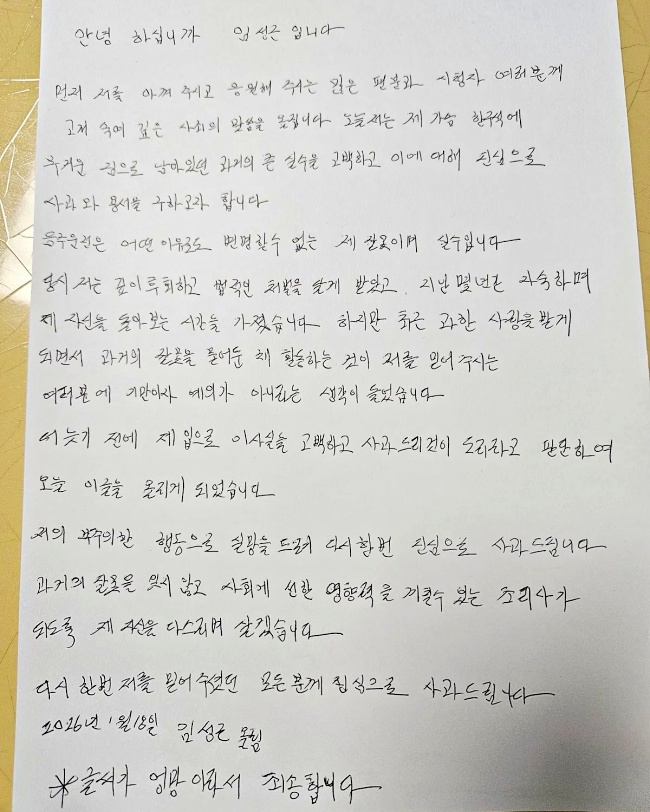 안녕 하십니까 임성근 입니다
먼저 저를 아껴 주시고 응원해 주시는 많은 팬분과 시청자 여러분께
고개 숙여 깊은 사죄의 말씀을 올립니다 오늘 저는 제 가슴 한구석에
무거운 짐으로 남아있던 과거의 큰 실수를 고백하고 이에 대해 진심으로
사과 와 용서를 구하고자 합니다
음주운전은 어떤 이유로도 변명할수 없는 제 잘못이며 실수입니다
당시 저는 깊이 후회하고 법적인 처벌을 달게 받았고, 지난 몇년간 자숙하며
제 자신을 돌아보는 시간을 가졌습니다 하지만 최근 과한 사랑을 받게
되면서 과거의 잘못을 묻어둔 채 활동하는 것이 저를 믿어 주시는
여러분에 기만이자 예의가 아니라는 생각이 들었습니다
더 늦기 전에 제 입으로 이사실을 고백하고 사과 드리는것이 도리라고 판단하여
오늘 이글을 올리게 되었습니다
저의 부주의한 행동으로 실망을 드려 다시한번 진심으로 사과드립니다
과거의 잘못을 잊지 않고 사회에 선한 영향력을 끼칠수 있는 조리사가
되도록 제 자신을 다스리며 살겠습니다
다시 한번 저를 믿어 주셨던 모든분께 진심으로 사과드립니다
2026년 1월 18일 임성근 올림
※글씨가 엉망 이라서 죄송합니다